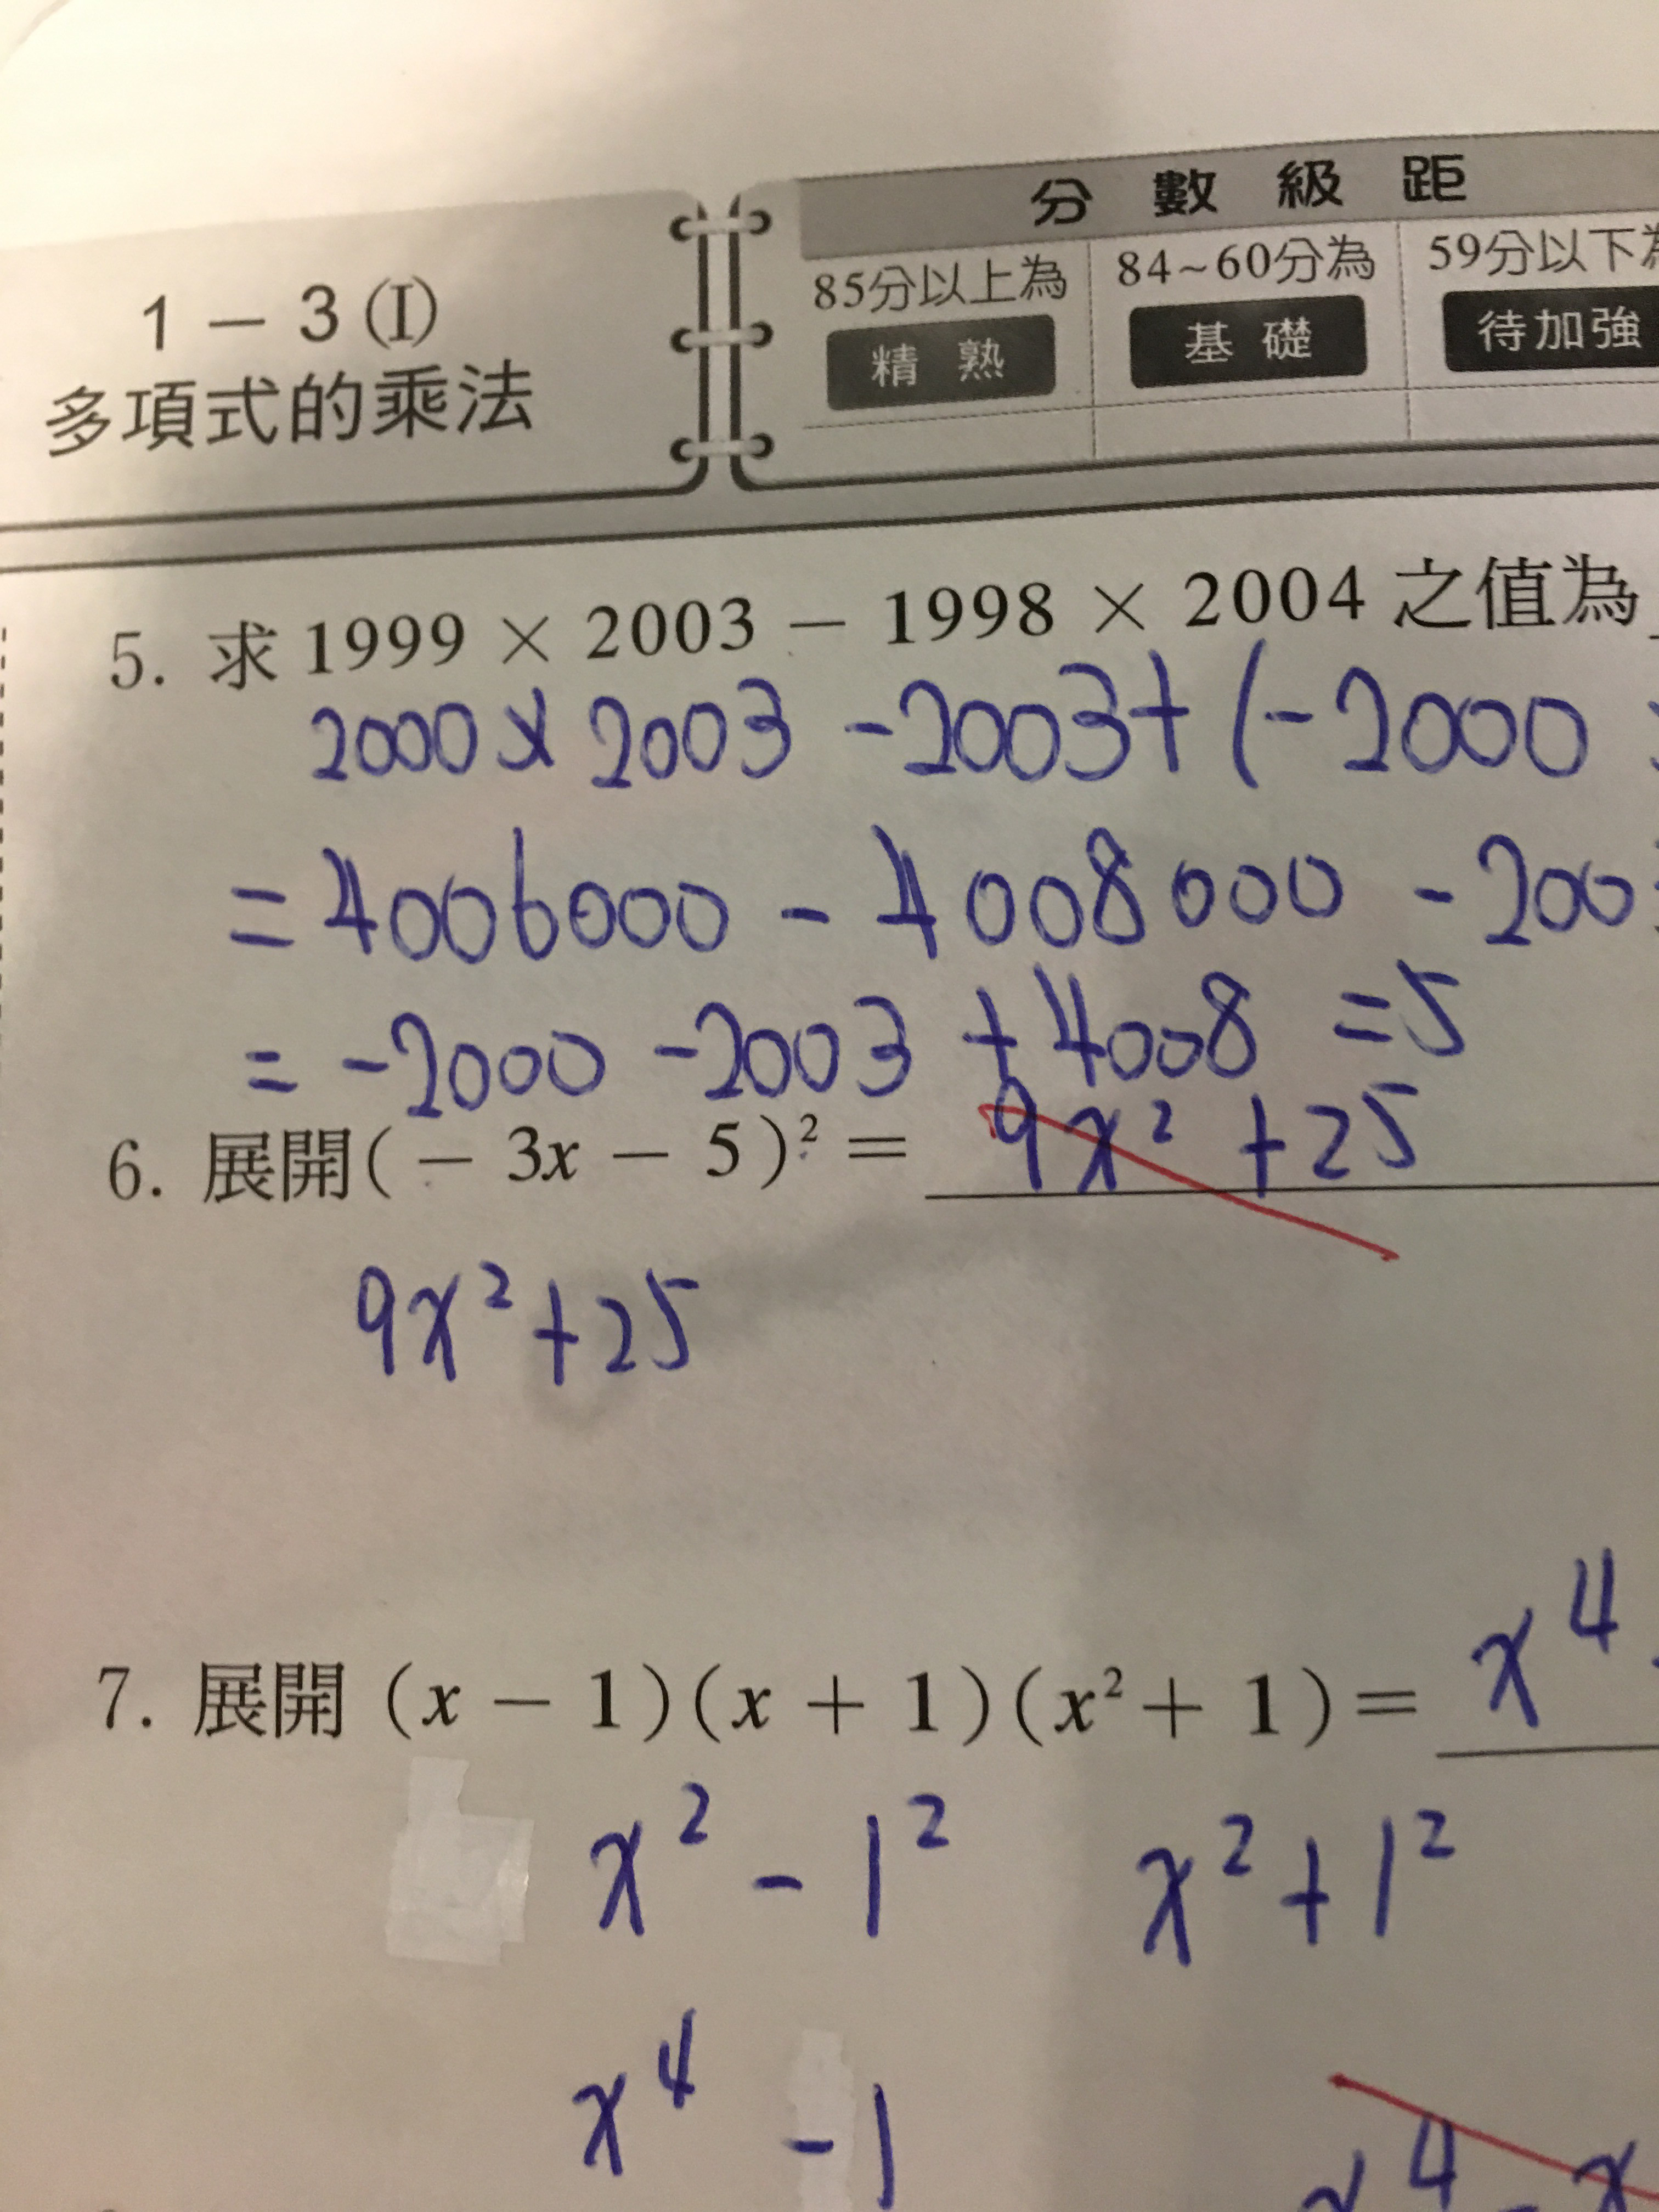 1－3(I)
多項式的乘法
分 數 級 距
85分以上為
84~60分為
59分以下為
精 熟
基 礎
待加強
5. 求 1999 × 2003 － 1998 × 2004 之值為
2000 × 2003 - 2003 + (- 2000
= 4006000 - 4008000 - 2003
= -2000 - 2003 + 4008 = 5
6. 展開(－ 3x － 5)² = 9x² + 25
9x² + 25
7. 展開 (x － 1)(x ＋ 1)(x²＋ 1)= x⁴
x² - 1² x² + 1²
x⁴ - 1
x⁴ - x